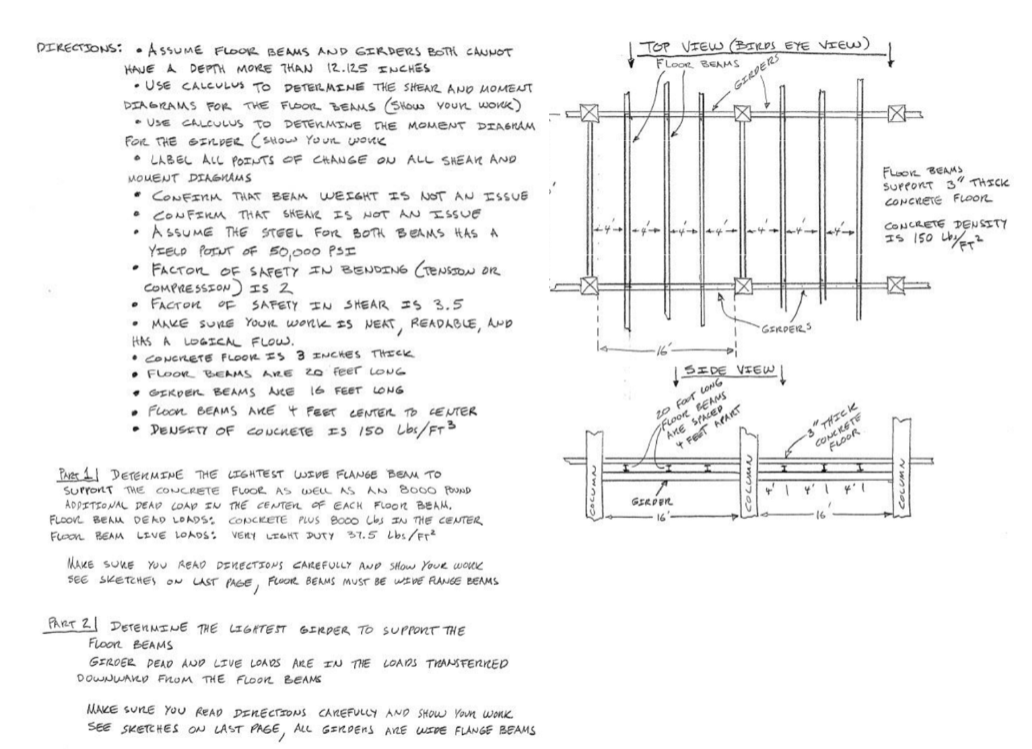 DIRECTIONS: • ASSUME FLOOR BEAMS AND GIRDERS BOTH CANNOT
HAVE A DEPTH MORE THAN 12.125 INCHES
• USE CALCULUS TO DETERMINE THE SHEAR AND MOMENT
DIAGRAMS FOR THE FLOOR BEAMS (SHOW YOUR WORK)
• USE CALCULUS TO DETERMINE THE MOMENT DIAGRAM
FOR THE GIRDER (SHOW YOUR WORK
• LABEL ALL POINTS OF CHANGE ON ALL SHEAR AND
MOMENT DIAGRAMS
• CONFIRM THAT BEAM WEIGHT IS NOT AN ISSUE
• CONFIRM THAT SHEAR IS NOT AN ISSUE
• ASSUME THE STEEL FOR BOTH BEAMS HAS A
YIELD POINT OF 50,000 PSI
• FACTOR OF SAFETY IN BENDING (TENSION OR
COMPRESSION) IS 2
• FACTOR OF SAFETY IN SHEAR IS 3.5
• MAKE SURE YOUR WORK IS NEAT, READABLE, AND
HAS A LOGICAL FLOW.
• CONCRETE FLOOR IS 3 INCHES THICK
• FLOOR BEAMS ARE 20 FEET LONG
• GIRDER BEAMS ARE 16 FEET LONG
• FLOOR BEAMS ARE 4 FEET CENTER TO CENTER
• DENSITY OF CONCRETE IS 150 Lbs/FT³
PART 1 DETERMINE THE LIGHTEST WIDE FLANGE BEAM TO
SUPPORT THE CONCRETE FLOOR AS WELL AS AN 8000 POUND
ADDITIONAL DEAD LOAD IN THE CENTER OF EACH FLOOR BEAM.
FLOOR BEAM DEAD LOADS: CONCRETE PLUS 8000 Lbs IN THE CENTER
FLOOR BEAM LIVE LOADS: VERY LIGHT DUTY 37.5 Lbs/FT²
MAKE SURE YOU READ DIRECTIONS CAREFULLY AND SHOW YOUR WORK
SEE SKETCHES ON LAST PAGE, FLOOR BEAMS MUST BE WIDE FLANGE BEAMS
PART 2 DETERMINE THE LIGHTEST GIRDER TO SUPPORT THE
FLOOR BEAMS
GIRDER DEAD AND LIVE LOADS ARE IN THE LOADS TRANSFERRED
DOWNWARD FROM THE FLOOR BEAMS
MAKE SURE YOU READ DIRECTIONS CAREFULLY AND SHOW YOUR WORK
SEE SKETCHES ON LAST PAGE, ALL GIRDERS ARE WIDE FLANGE BEAMS
TOP VIEW (BIRDS EYE VIEW)
FLOOR BEAMS
GIRDERS
FLOOR BEAMS
SUPPORT 3" THICK
CONCRETE FLOOR
CONCRETE DENSITY
IS 150 Lbs/FT²
4' 4' 4' 4' 4' 4' 4' 4'
GIRDERS
16'
SIDE VIEW
20 FOOT LONG
FLOOR BEAMS
ARE SPACED
4 FEET APART
3" THICK
CONCRETE
FLOOR
COLUMN
COLUMN
COLUMN
GIRDER
4' 4' 4'
16'
16'